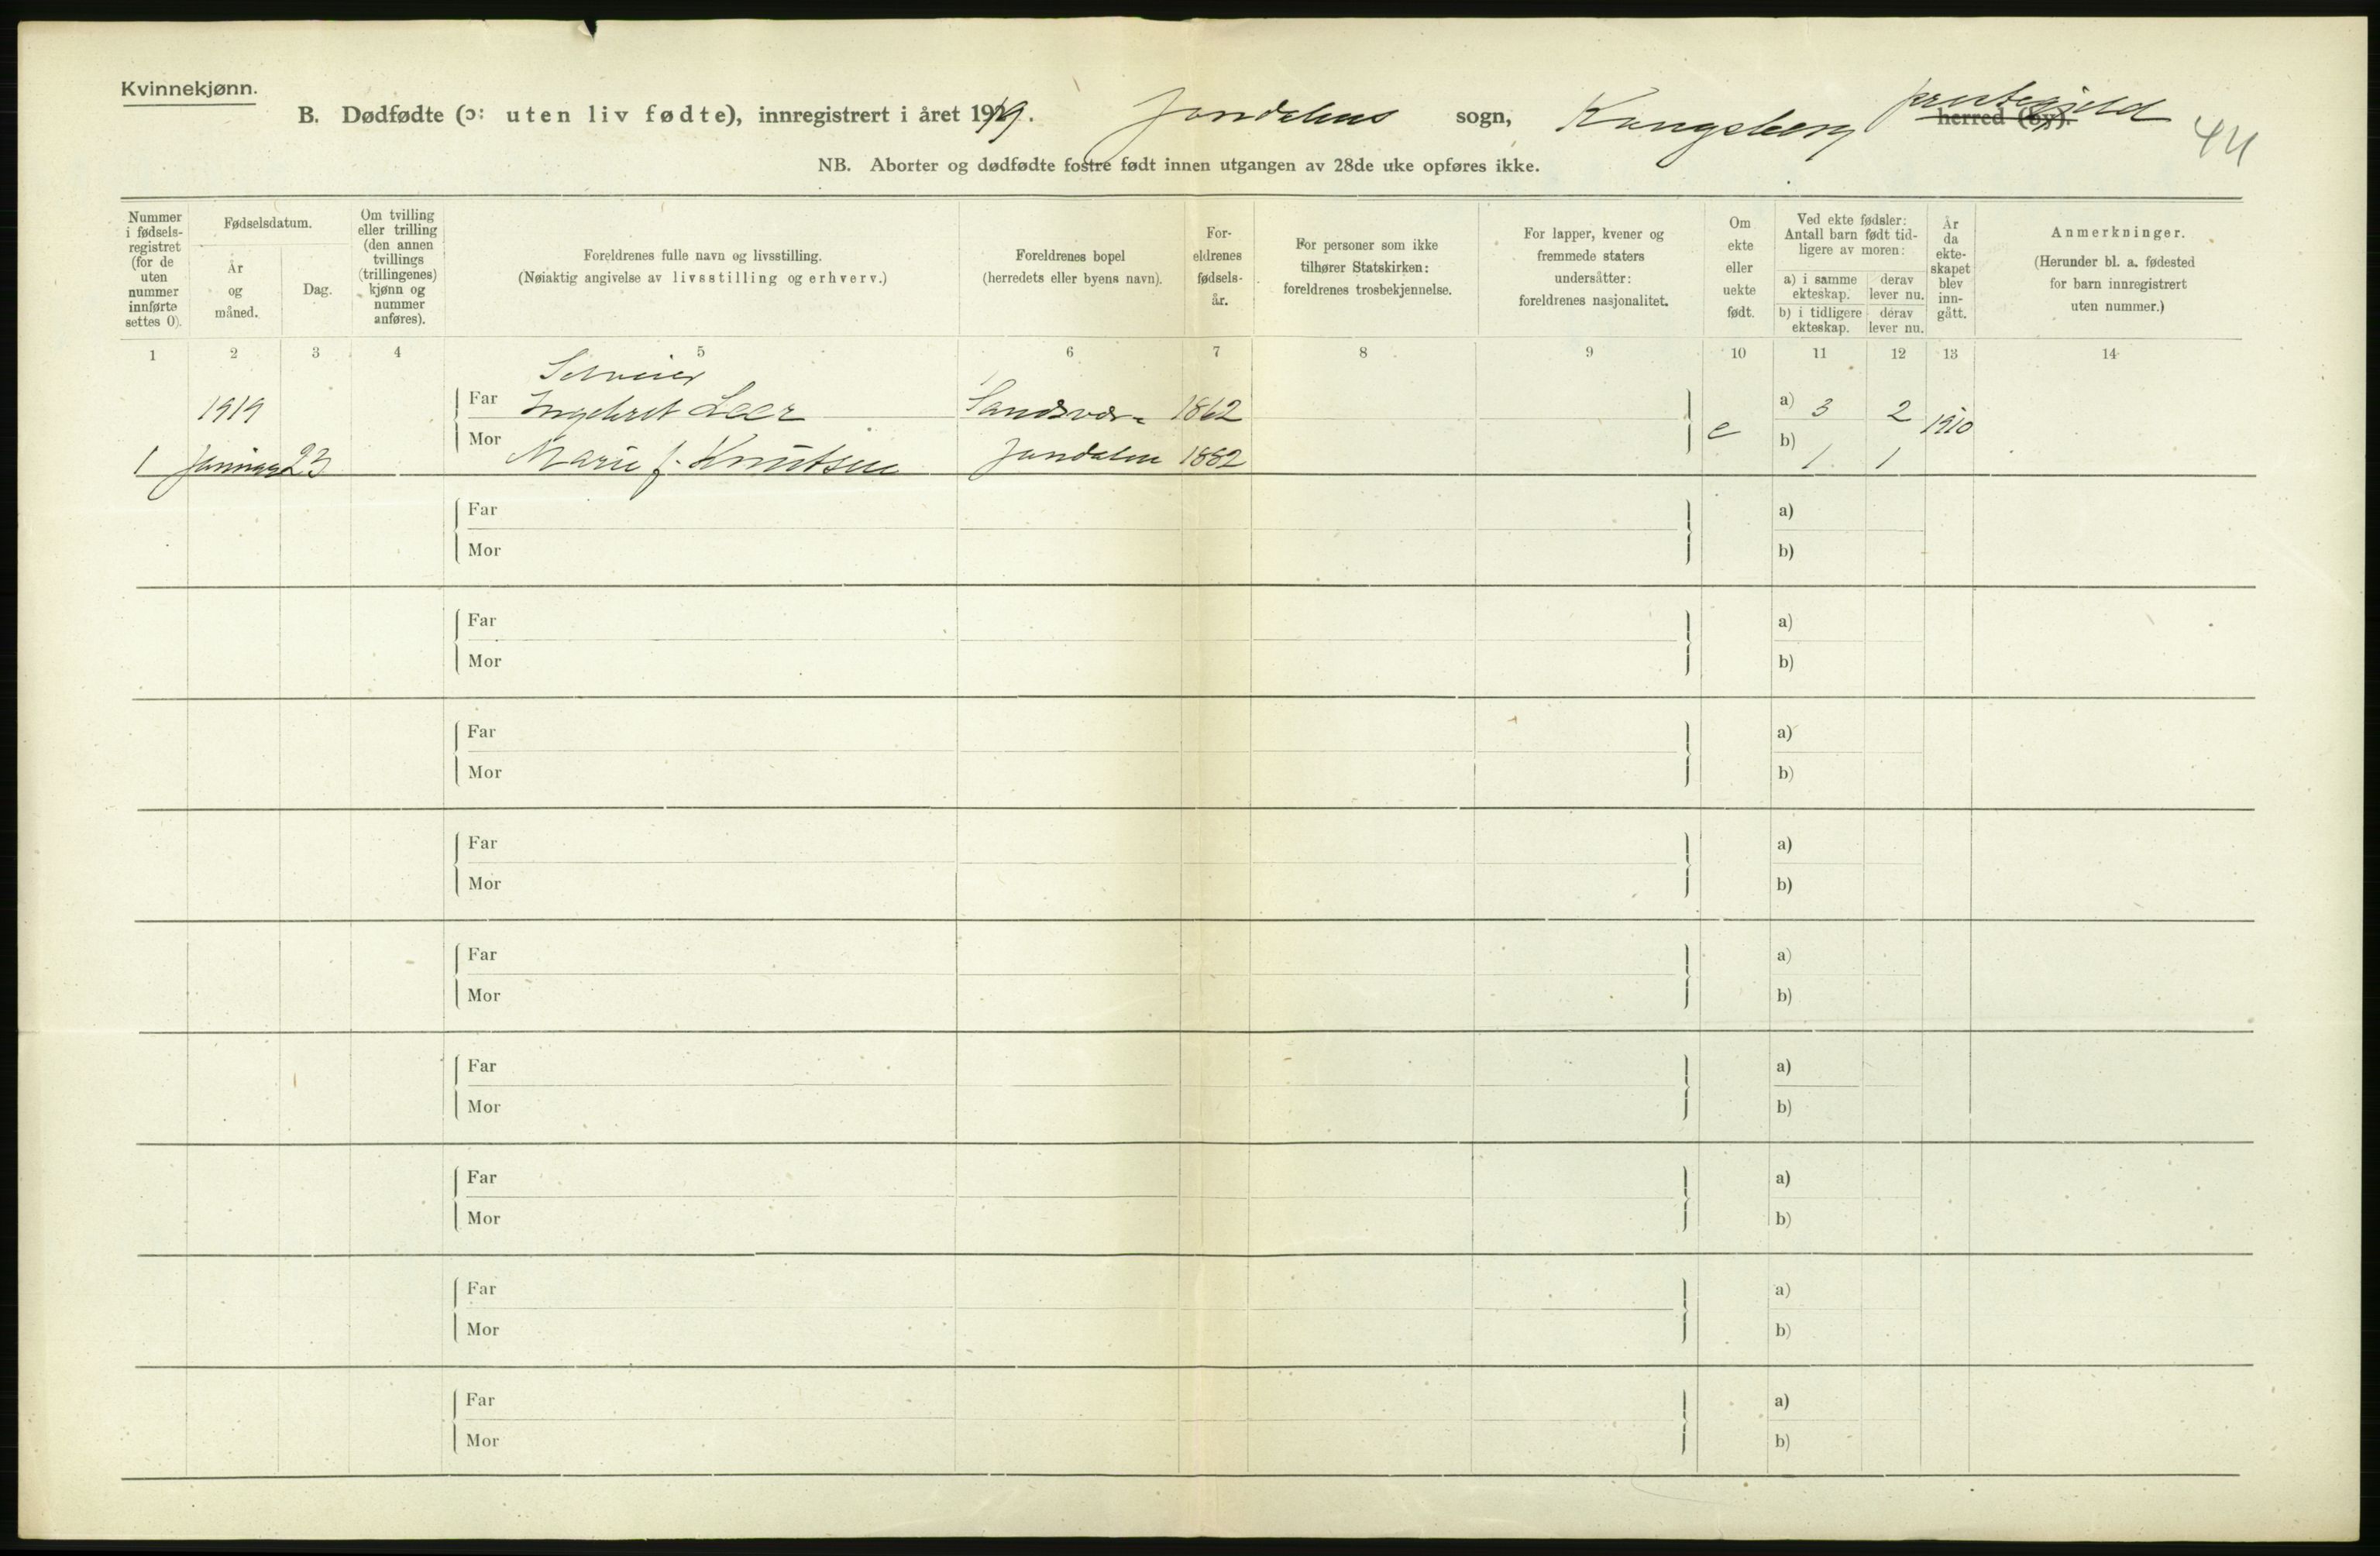 Kvinnekjønn.
B. Dødfødte (ɔ: uten liv fødte), innregistrert i året 1919. Jondalens sogn, Kongsberg prestegjeld herred (by).
44
NB. Aborter og dødfødte fostre født innen utgangen av 28de uke opføres ikke.
Nummer i fødsels-registret (for de uten nummer innførte settes 0).
Fødselsdatum.
År og måned.
Dag.
Om tvilling eller trilling (den annen tvillings (trillingenes) kjønn og nummer anføres).
Foreldrenes fulle navn og livsstilling.
(Nøiaktig angivelse av livsstilling og erhverv.)
Foreldrenes bopel
(herredets eller byens navn).
For-eldrenes fødsels-år.
For personer som ikke tilhører Statskirken: foreldrenes trosbekjennelse.
For lapper, kvener og fremmede staters undersåtter: foreldrenes nasjonalitet.
Om ekte eller uekte født.
Ved ekte fødsler: Antall barn født tid-ligere av moren:
a) i samme ekteskap.
derav lever nu.
b) i tidligere ekteskap.
derav lever nu.
År da ekte-skapet blev inn-gått.
Anmerkninger.
(Herunder bl. a. fødested for barn innregistrert uten nummer.)
1 2 3 4 5 6 7 8 9 10 11 12 13 14
Selveier
1919 Far Ingebret Leer Sandsvær 1862 a) 3 2 1910
1 Januar 23 Mor Marie f. Knutsen Jondalen 1882 e b) 1 1
Far a)
Mor b)
Far a)
Mor b)
Far a)
Mor b)
Far a)
Mor b)
Far a)
Mor b)
Far a)
Mor b)
Far a)
Mor b)
Far a)
Mor b)
Far a)
Mor b)